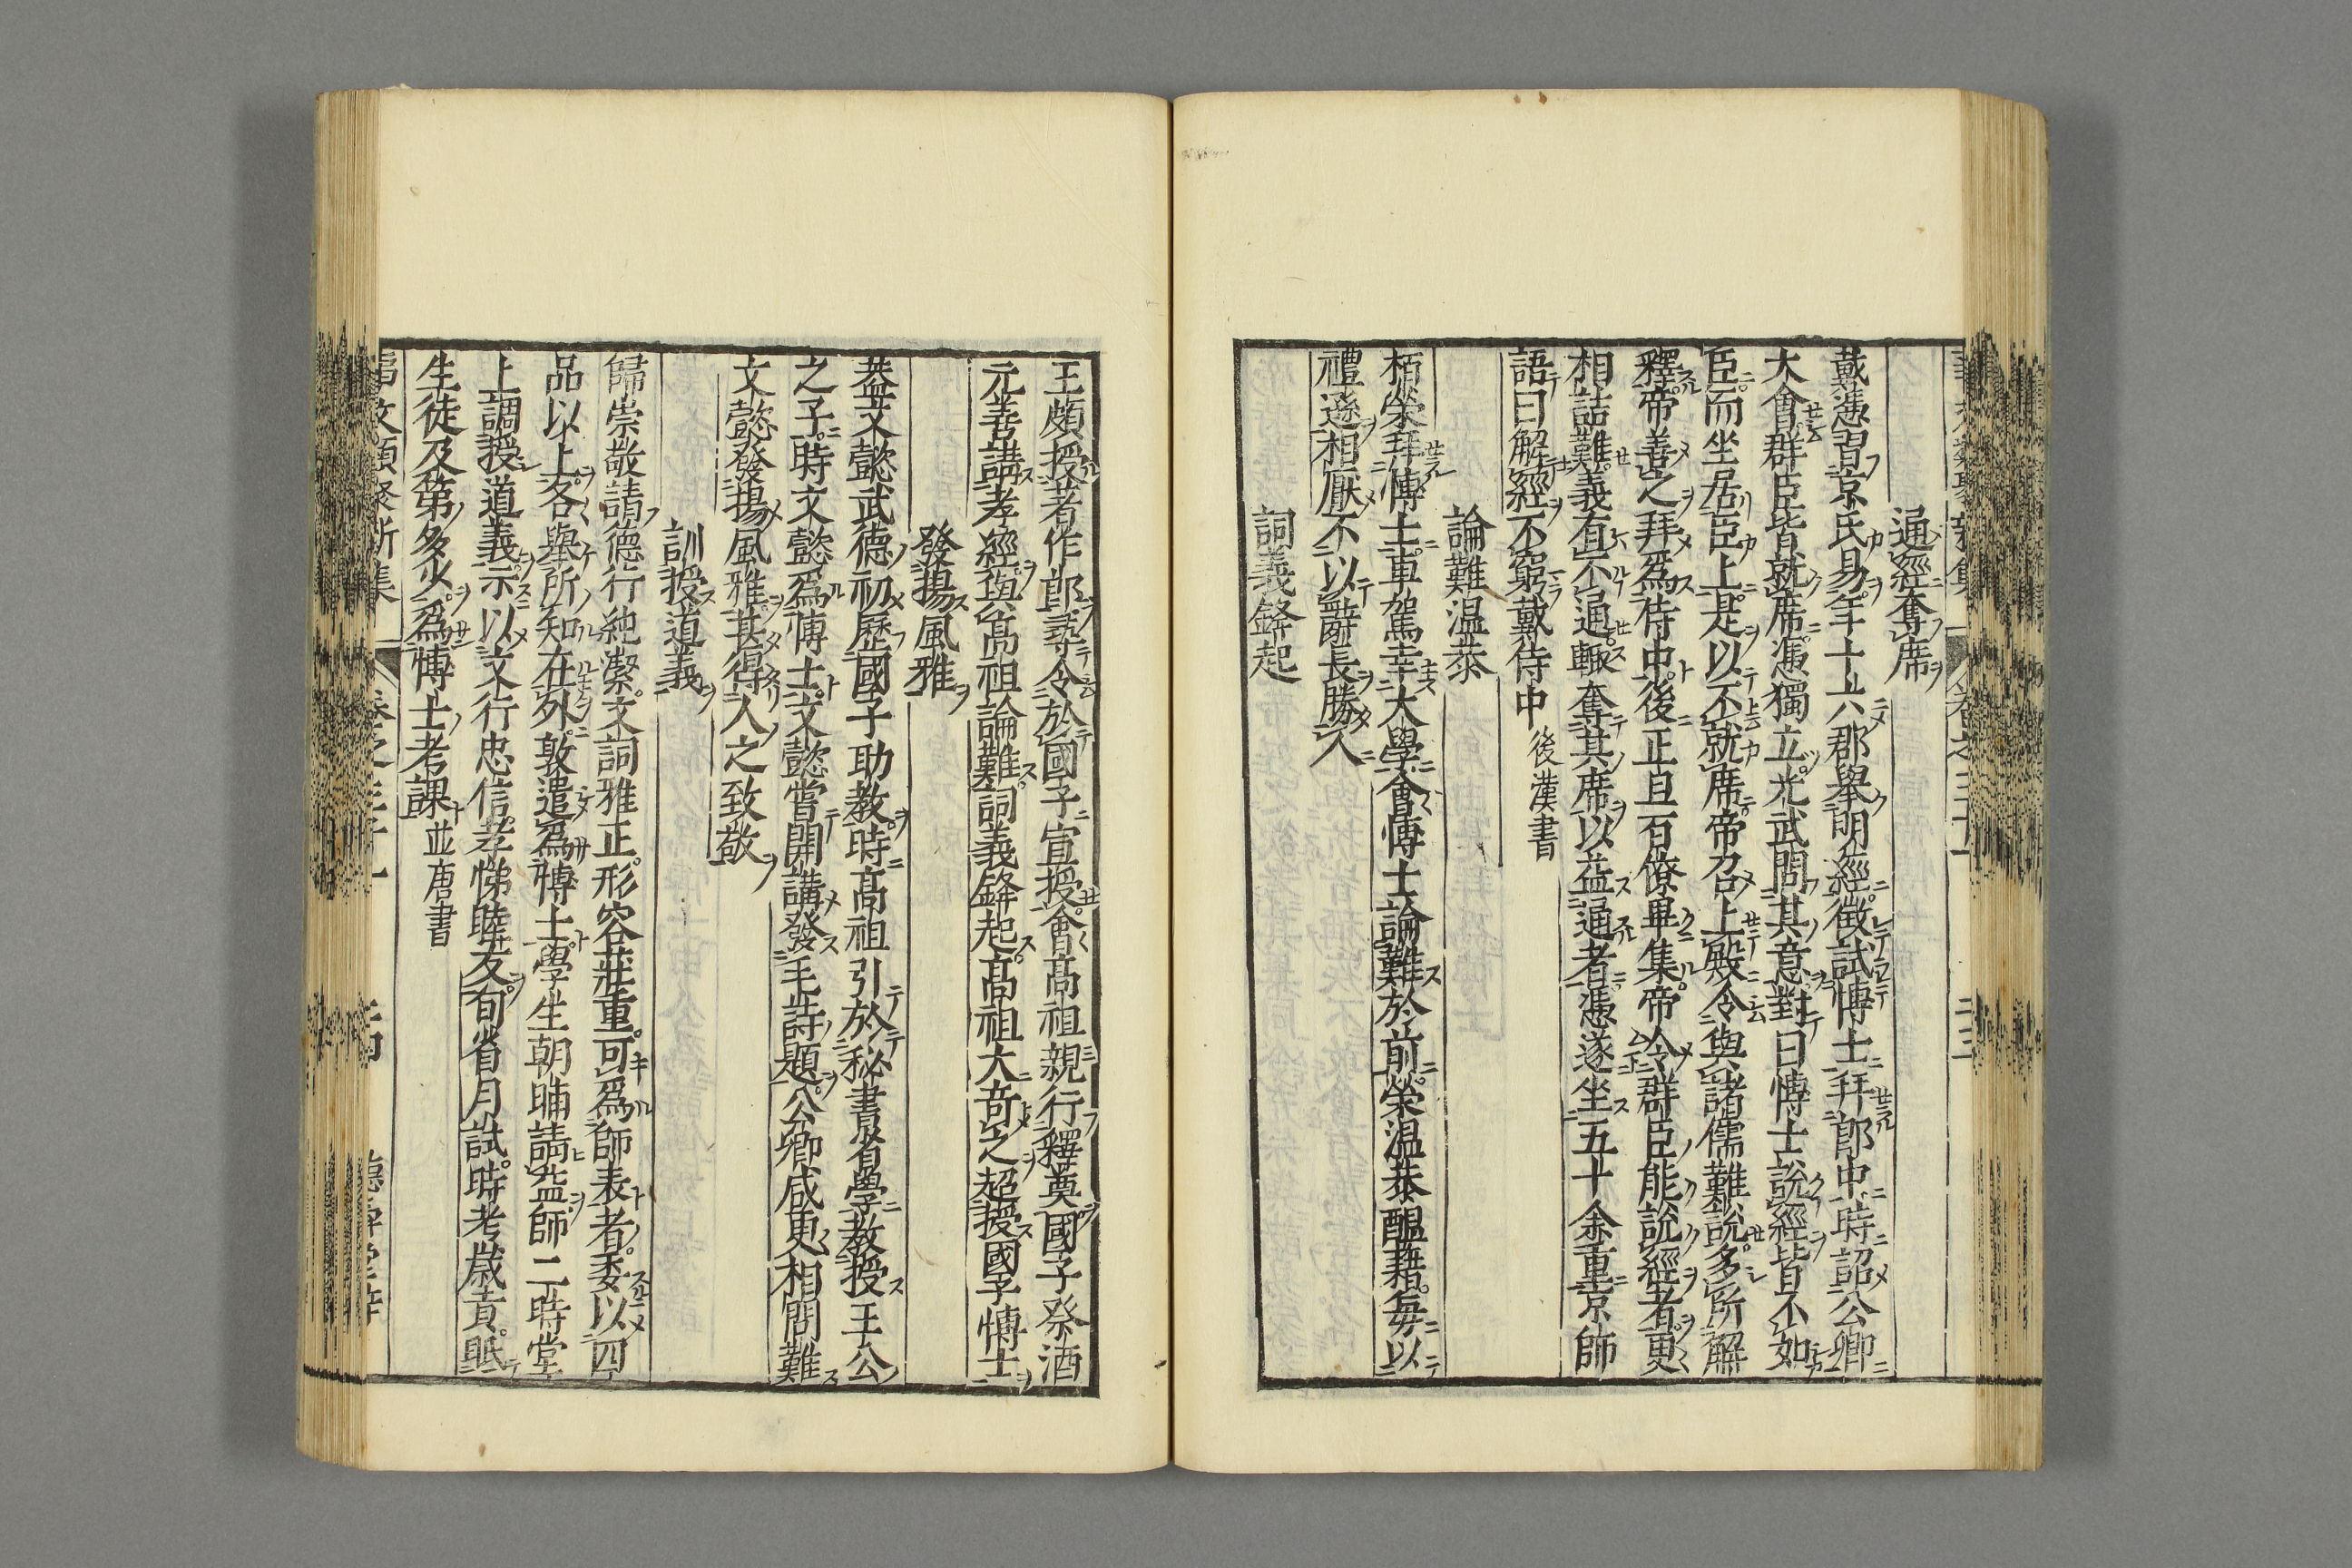 通經奪席
戴憑習京氏易年十六郡舉明經徵試博士拜郎中時詔公卿
大會群臣皆就席憑獨立光武問其意對曰博士說經皆不如
臣而坐居臣上是以不就席帝召上殿令與諸儒難說多所解
釋帝善之拜爲侍中後正旦百僚畢集帝令群臣能說經者更
相詰難義有不通輙奪其席以益通者憑遂坐五十余重京師
語曰解經不窮戴侍中後漢書
論難温恭
栢榮拜博士車駕幸大學會博士論難於前榮温恭醖藉每以
禮遜相厭不以辭長勝人
詞義鋒起
王頗授著作郎尋令於國子宣授會高祖親行釋奠國子祭酒
元善講孝經與高祖論難詞義鋒起高祖大奇之超授國子博士
發揚風雅
葢文懿武德初歷國子助教時高祖引於秘書省學教授王公
之子時文懿爲博士文懿嘗開講發毛詩題公卿咸更相問難
文懿發揚風雅甚得人之致敬
訓授道義
歸崇敬請德行純潔文詞雅正形容莊重可爲師表者委以四
品以上各舉所知在外敦遣爲博士學生朝晡請益師二時堂
上調授道義示以文行忠信孝悌睦友旬省月試時考歲貢眡
生徒及第多少爲博士考課並唐書